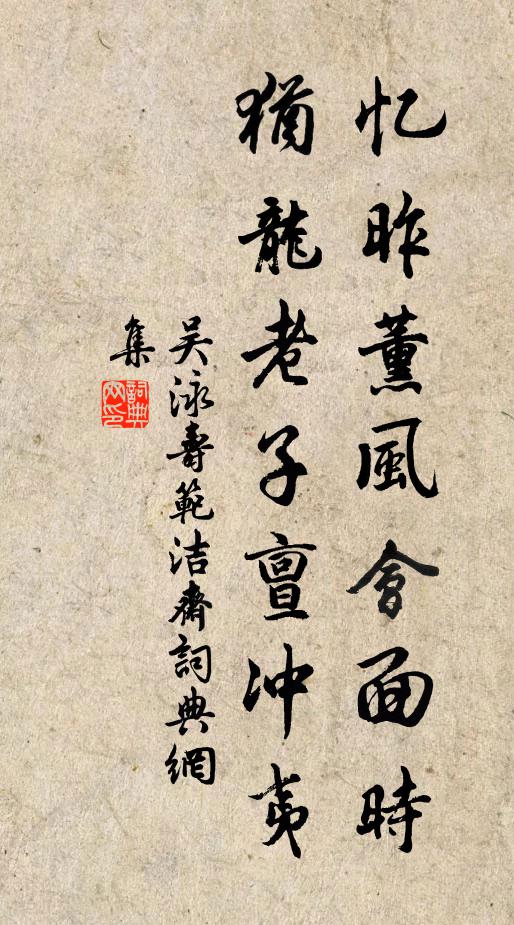 忆昨薰風會面時
猶龍老子亶冲夷
吴泳壽範洁齋詞典網
集
詞典
网